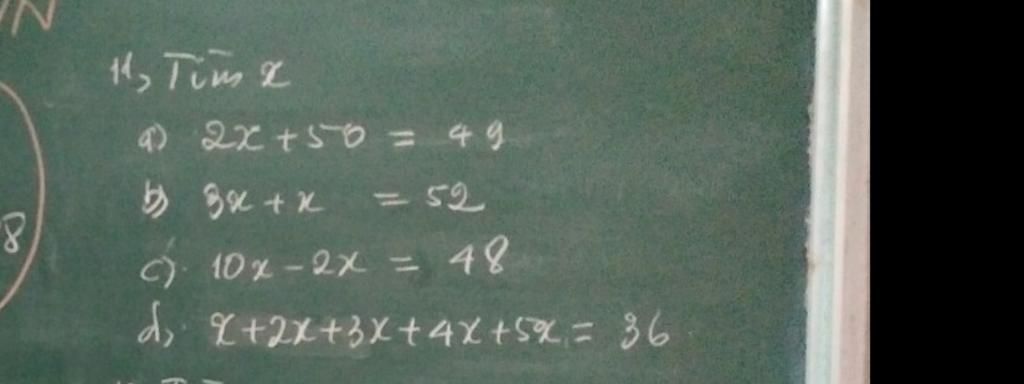 11, Tìm x
a) 2x + 50 = 49
b) 3x + x = 52
c). 10x - 2x = 48
d), x + 2x + 3x + 4x + 5x = 36
8